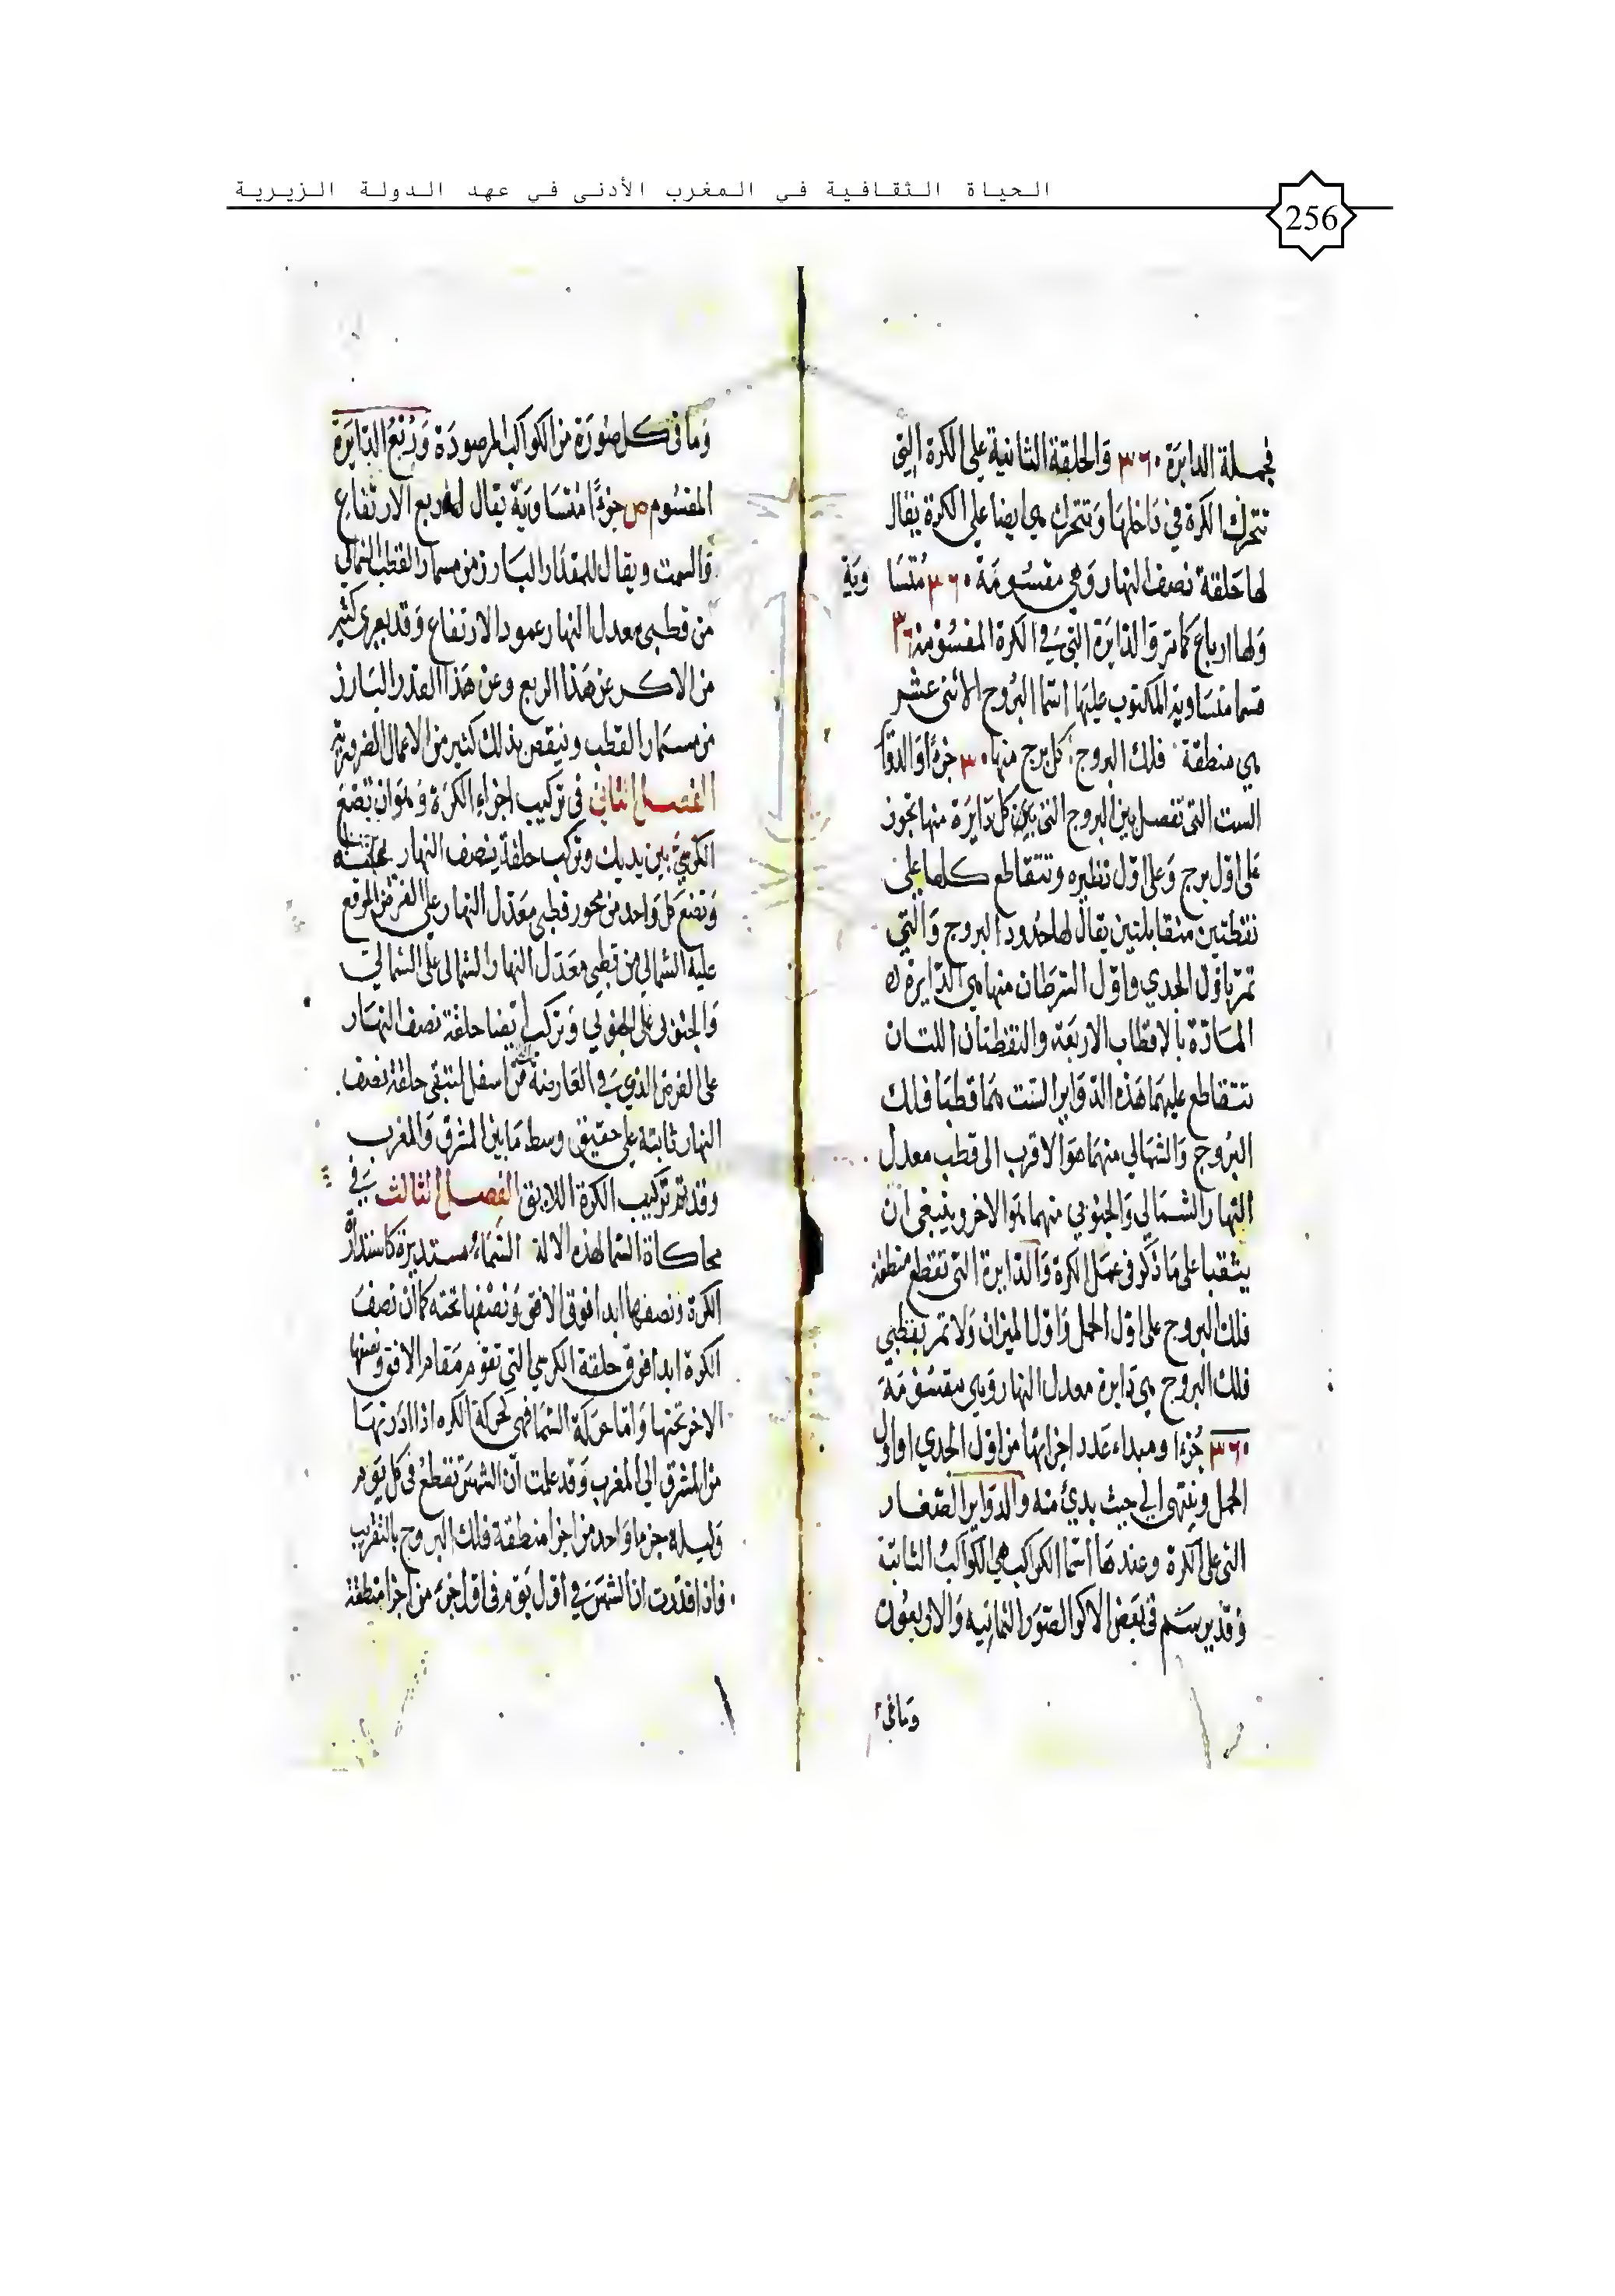 الحياة الثقافية في المغرب الأدنى في عهد الدولة الزيرية
256
فجملة الدايرة ٣٦٠ وَالحلقة الثانية على الكرة التى
تتحرك الكرة في دَاخلهَا وَتتحرك هى ايضا على الكرة يقال
لها حَلقة نصف النهار وَهي مقسُومَة ٣٦٠ مُتسَا وية
وَلها ارباع كمامرّ وَالدايرَة التي في الكرة المقسُومة ٣٦
قسما متسَاوية المكتوب عليهَا اسّما البُروج الاثنى عشر
هى منطقة فلك البروج كل برج منها ٣٠ جزءًا وَالدوا
الست التى تفصل بين البروج التى بين كل دَايَرَة منها تجوز
على اوّل برج وَعلى اوّل نظيره وتتقاطع كلها على
نقطتين متقابلتين يقال لها حدُود البروج وَالتي
تمرّ باوّل الجدي واوّل السّرطان منها هى الدّايرة
المارّة بالاقطاب الاربعَة والنقطتان اللتان
تتقاطع عليهمَا هَذه الدّوَاير السّت همَا قطبَا فلك
البروج وَالشمالي منهمَا هوَ الاقرب الى قطب معدل
النهار الشمَالي وَالجنوبي منهما هوَ الاخر وينبغى ان
يثقبا على مَا ذكر فى عمَل الكرة وَالدايرة التى تقطع منطقة
فلك البروج على اوّل الحمل وَاوّل الميزان وَلا تمر بقطبي
فلك البروج هى دَايرة معدل النهار وَهى مقسُومَة
٣٦٠ جُزءا ومبداء عَدد اجزائهَا من اوّل الجدي او اول
الحمل وينتهى الى حيث بدئ منه والدوَاير الصّغار
التى على الكرة وعندهَا اسّما الكواكب هي الكواكبُ الثابتة
وَقد يرسَم فى بَعض الاكر الصّوَر الثمانيه وَالاربعُون
وَمَا فى
وَمَا فى كل صُورَة من الكوَاكب المرصودَة وَرُبعُ الدّايَرة
المقسُوم ص جزءًا مُتسَاوية يقال له ربع الارتفاع
وَالسمت ويقال للمقدَار البَارز من مسمار القطب الشمالي
من قطبى معدل النهار عمود الارتفاع وَقد يعرى كثير
من الاكر عن هَذا الربع وعن هَذا القدر البَارز
من مسمَار القطب وَينقص بذلك كثير من الاعمال الضرورية
الفصل الثاني فى تركيب اجزاء الكرَة وَهوَ ان تضعَ
الكرسى بَين يديك وتركب حلقة نصف النهار
وَتضعَ كل وَاحد من محور قطبى معَدّل النهار على الفرض الموقع
عليه الشمالي من قطبى معَدّل النهار الشمالى على الشمَالي
وَالجنوبى على الجنوبي وَتركب ايضا حلقة نصف النهَار
على الفرض الذي في العَارضة من اسفل لتبقى حلقة نصف
النهار ثابتة على حقيق وسط مَا بين المشرق وَالمغرب
وقد تمّ تركيب الكرة الفصل الثالث في
محاكاة السّما لهذه الالة السّمَاءُ مستديرة كاستدارة
الكرة ونصفها ابدا فوق الافق وَنصْفها تحته كما ان نصفَ
الكرة ابدا فوق حلقة الكرسي التي تقوم مَقام الافق ونصفها
الاخر تحتها وَامّا حرَكة السّمَا فهى كحركة الكره اذا ادَرتهَا
من المشرق الي المغرب وَقد علمت ان الشمسَ تقطعُ فى كل يَوم
وَليله جزءا وَاحد من اجزا منطقة فلك البروج بالتقريب
فاذا قدّرت ان الشمسَ في اوّل يَوم فى اوّل جزءَ من اجزا منطقة